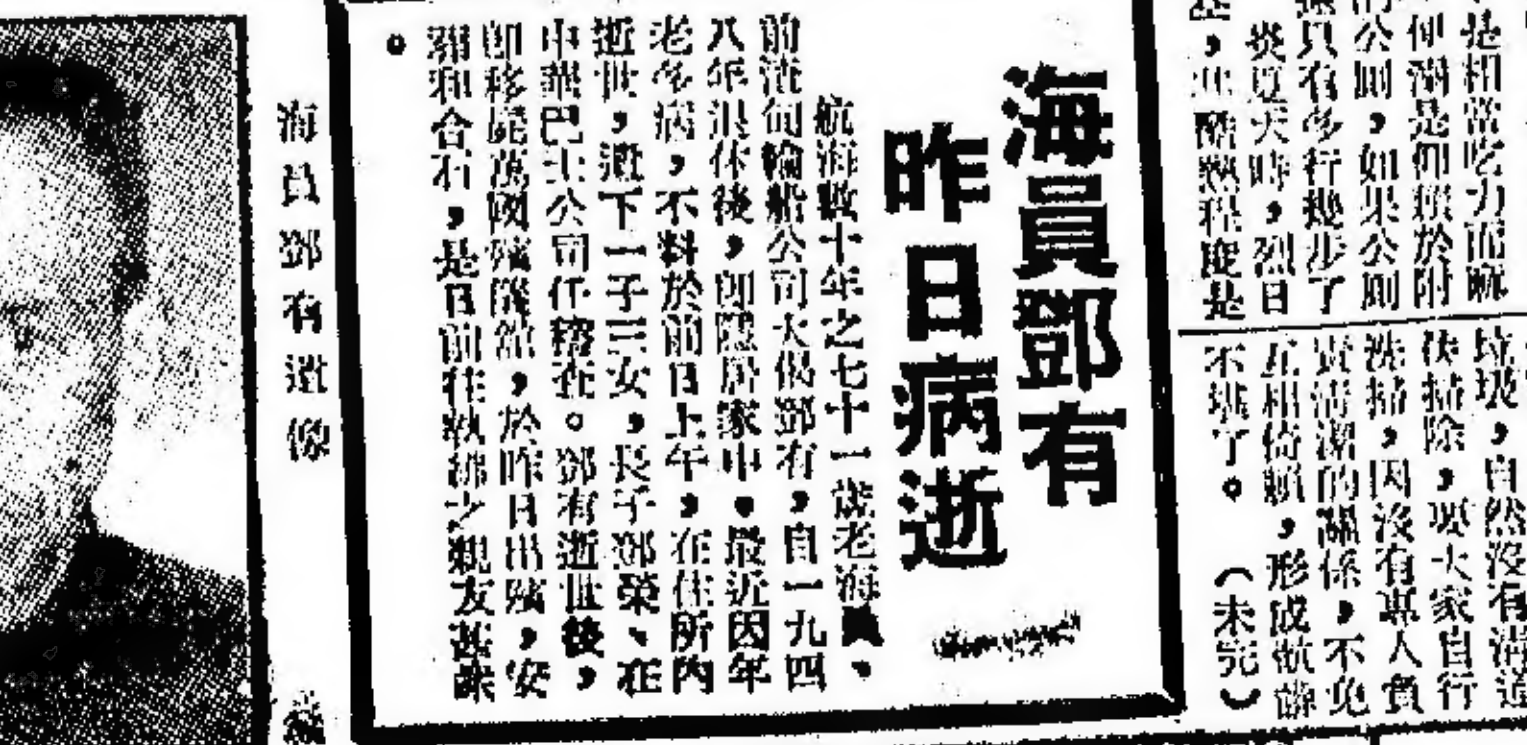 是相當吃力而
仰溺是仰賴於附
公厠,如果公厠
還只有多行幾步了
炎夏天時,烈日
,其酷熱程度是
垃圾,自然沒有清道
伕掃除,要大家自行
洗掃,因沒有專人負
責清潔的關係,不免
互相倚賴,形成骯髒
不堪了。 (未完)
海員鄧有
昨日病逝
航海數十年之七十一歲老海員、
前渣甸輪船公司大偈鄧有,自一九四
八年退休後,即隱居家中。最近因年
老多病,不料於前日上午,在住所內
逝世,遺下一子三女,長子鄧榮、在
中華巴士公司任稽查。鄧有逝世後,
即移屍萬國殯儀館,於昨日出殯,安
葬和合石,是日前往執紼之親友甚眾
。
海員鄧有遺像